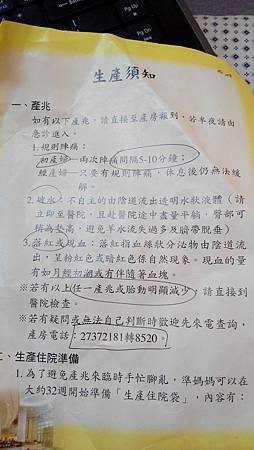 生產須知
一、產兆
如有以下產兆，請直接至產房報到，若半夜請由
急診進入。
1.規則陣痛：
初產婦—兩次陣痛間隔5-10分鐘；
經產婦—只要有規則陣痛，休息後仍無法緩
解。
2.破水：不自主的由陰道流出透明水狀液體（請
立即至醫院，且赴醫院途中盡量平躺，臀部可
稍為墊高，避免羊水流失過多及臍帶脫垂）
3.落紅或現血：落紅指血絲狀分泌物由陰道流
出，呈粉紅色或暗紅色係自然現象。現血的量
有如月經初潮或有伴隨著血塊。
※若有以上任一產兆或胎動明顯減少，請直接到
醫院檢查。
※若有疑問或無法自己判斷時歡迎先來電查詢，
產房電話：27372181轉8520。
二、生產住院準備
1.為了避免產兆來臨時手忙腳亂，準媽媽可以在
大約32週開始準備「生產住院袋」，內容有：